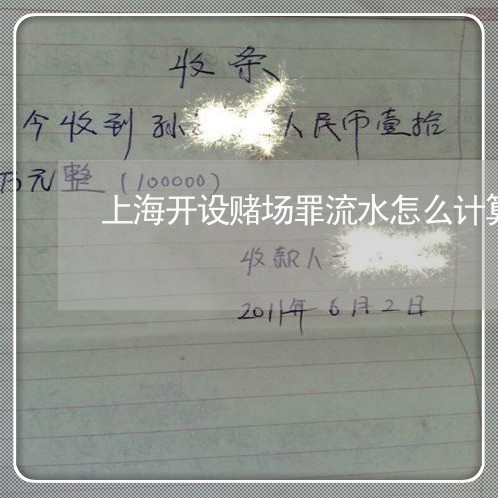 收条
今收到孙 人民币壹拾
万元整(100000)
上海开设赌场罪流水怎么计算
收款人
2011年6月2日